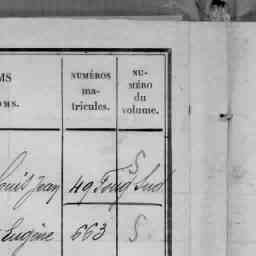 MS
OMS.
NUMÉROS
ma-
tricules.
NU-
MÉRO
du
volume.
5
ouis Jean 49 Sud
Eugène 663 5